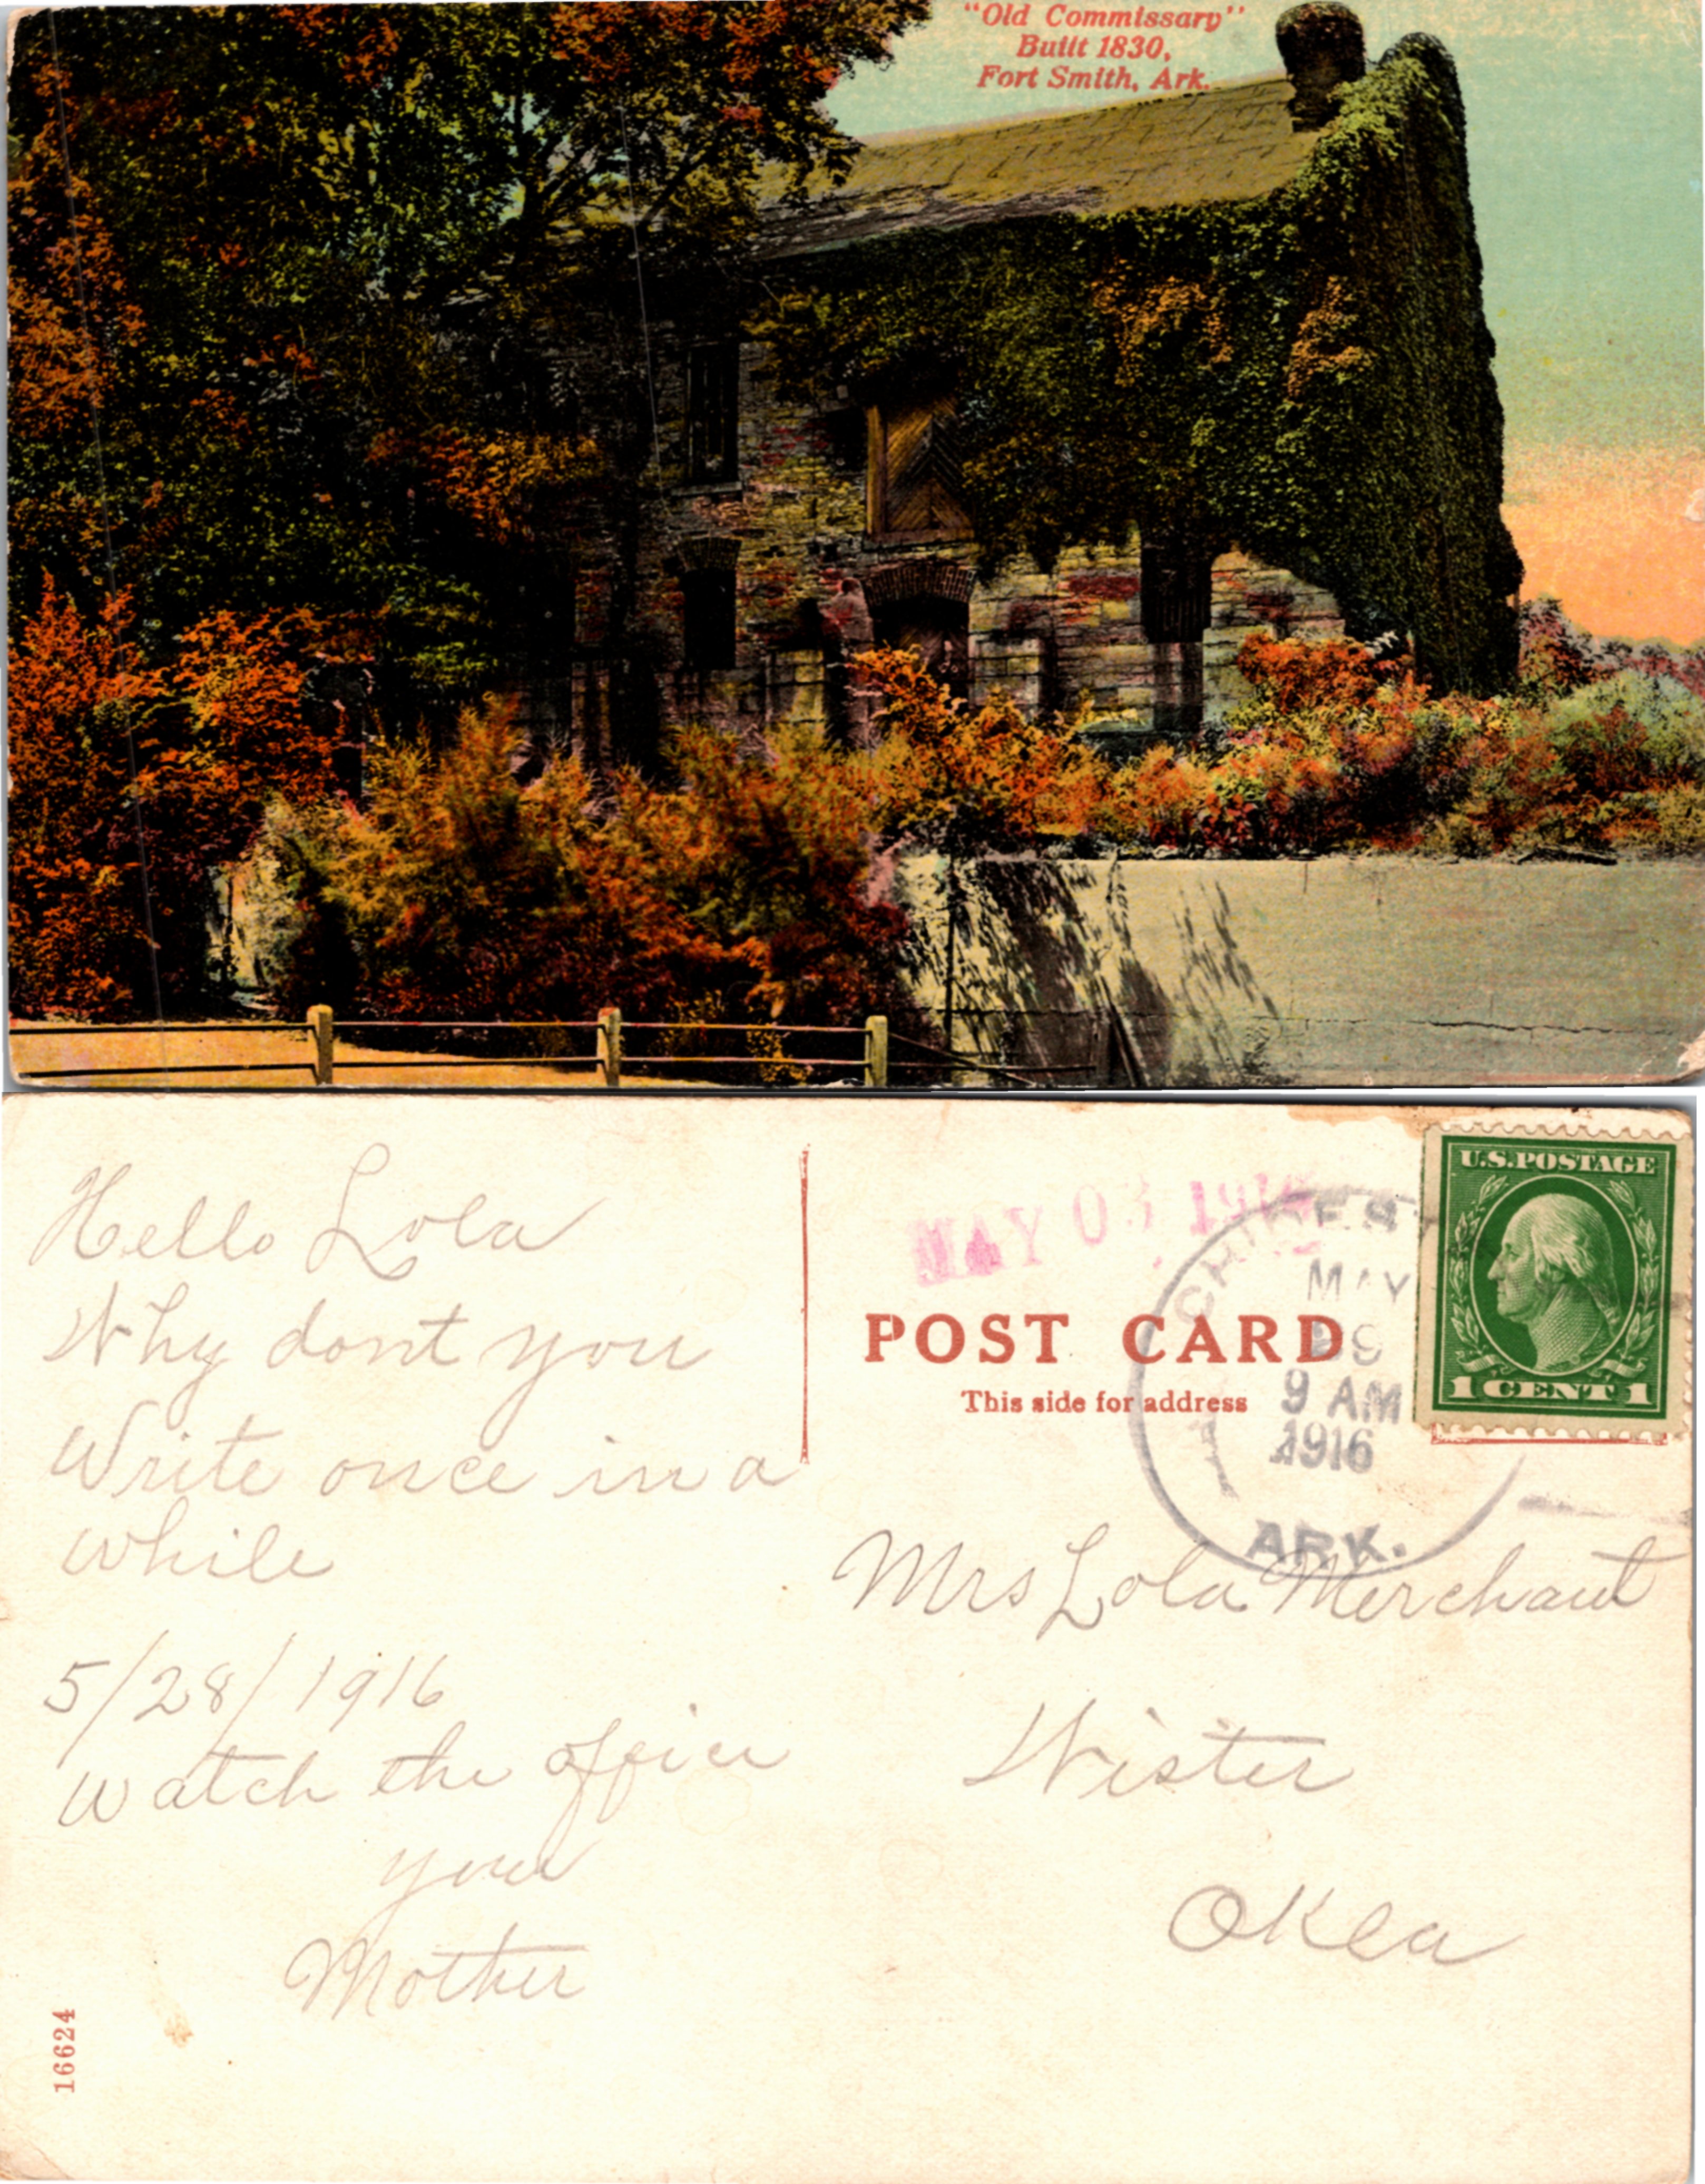 "Old Commissary"
Built 1830,
Fort Smith, Ark.
Hello Lola
Why dont you
Write once in a
while
5/28/1916
Watch the office
your
Mother
16624
MAY 03
POST CARD
This side for address
MAY
9 AM
1916
ARK.
U.S. POSTAGE
1 CENT 1
Mrs Lola Merchant
Wister
Okla